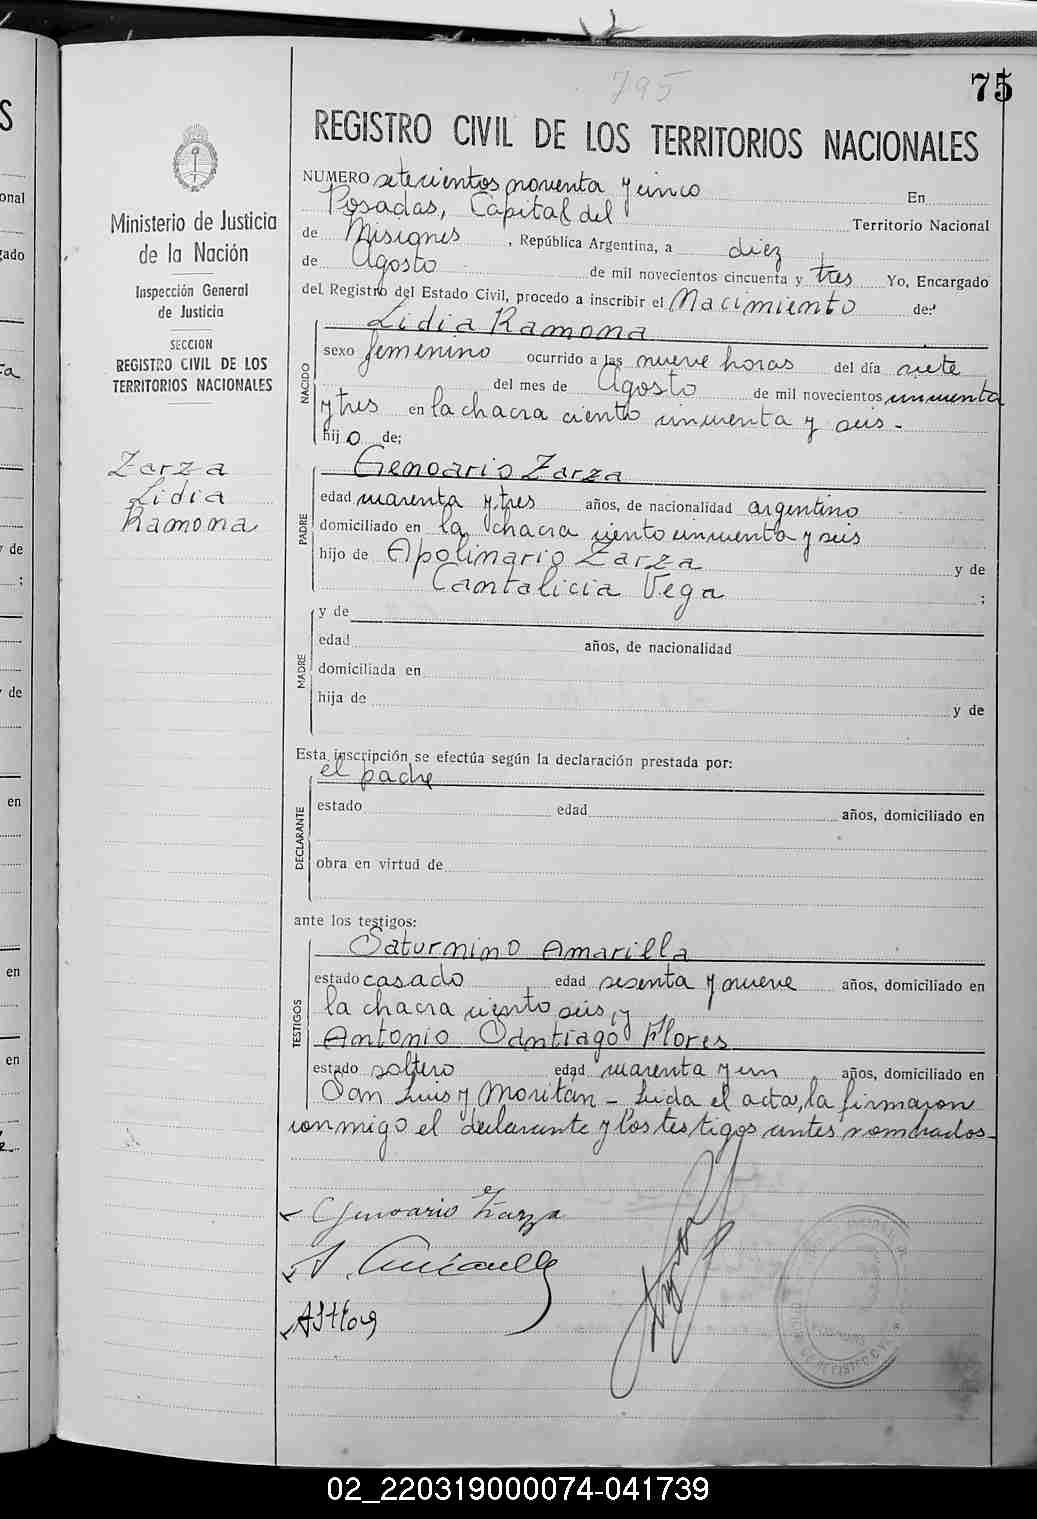 795
75
REGISTRO CIVIL DE LOS TERRITORIOS NACIONALES
NUMERO setecientos noventa y cinco En
Posadas, Capital del Territorio Nacional
de Misiones, República Argentina, a diez
de Agosto de mil novecientos cincuenta y tres Yo, Encargado
del Registro del Estado Civil, procedo a inscribir el Nacimiento de:
NACIDO
Lidia Ramona
sexo femenino ocurrido a las nueve horas del día siete
del mes de Agosto de mil novecientos cincuenta
y tres en la chacra ciento cincuenta y seis.-
hijo de;
PADRE
Genoario Zarza
edad cuarenta y tres años, de nacionalidad argentino
domiciliado en la chacra ciento cincuenta y seis
hijo de Apolinario Zarza y de
Cantalicia Vega ;
MADRE
y de
edad años, de nacionalidad
domiciliada en
hija de y de
Esta inscripción se efectúa según la declaración prestada por:
el padre
DECLARANTE
estado edad años, domiciliado en
obra en virtud de
ante los testigos:
TESTIGOS
Saturnino Amarilla
estado casado edad sesenta y nueve años, domiciliado en
la chacra ciento seis, y
Antonio Santiago Flores
estado soltero edad cuarenta y un años, domiciliado en
San Luis y Moritán - Leida el acta, la firmaron
conmigo el declarante y los testigos antes nombrados-
Genoario Zarza
Ministerio de Justicia
de la Nación
Inspección General
de Justicia
SECCION
REGISTRO CIVIL DE LOS
TERRITORIOS NACIONALES
Zarza
Lidia
Ramona
S
onal
gado
y de
;
y de
en
en
en
02_220319000074-041739